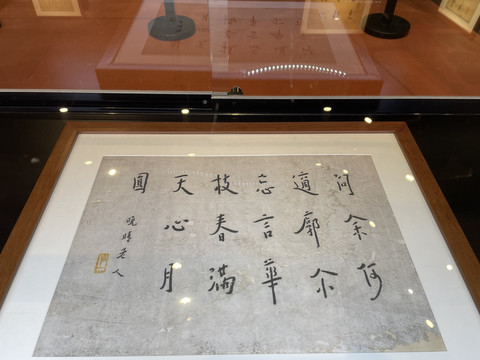 問余何
適廓尒
忘言華
枝春滿
天心月
圓
晚晴老人